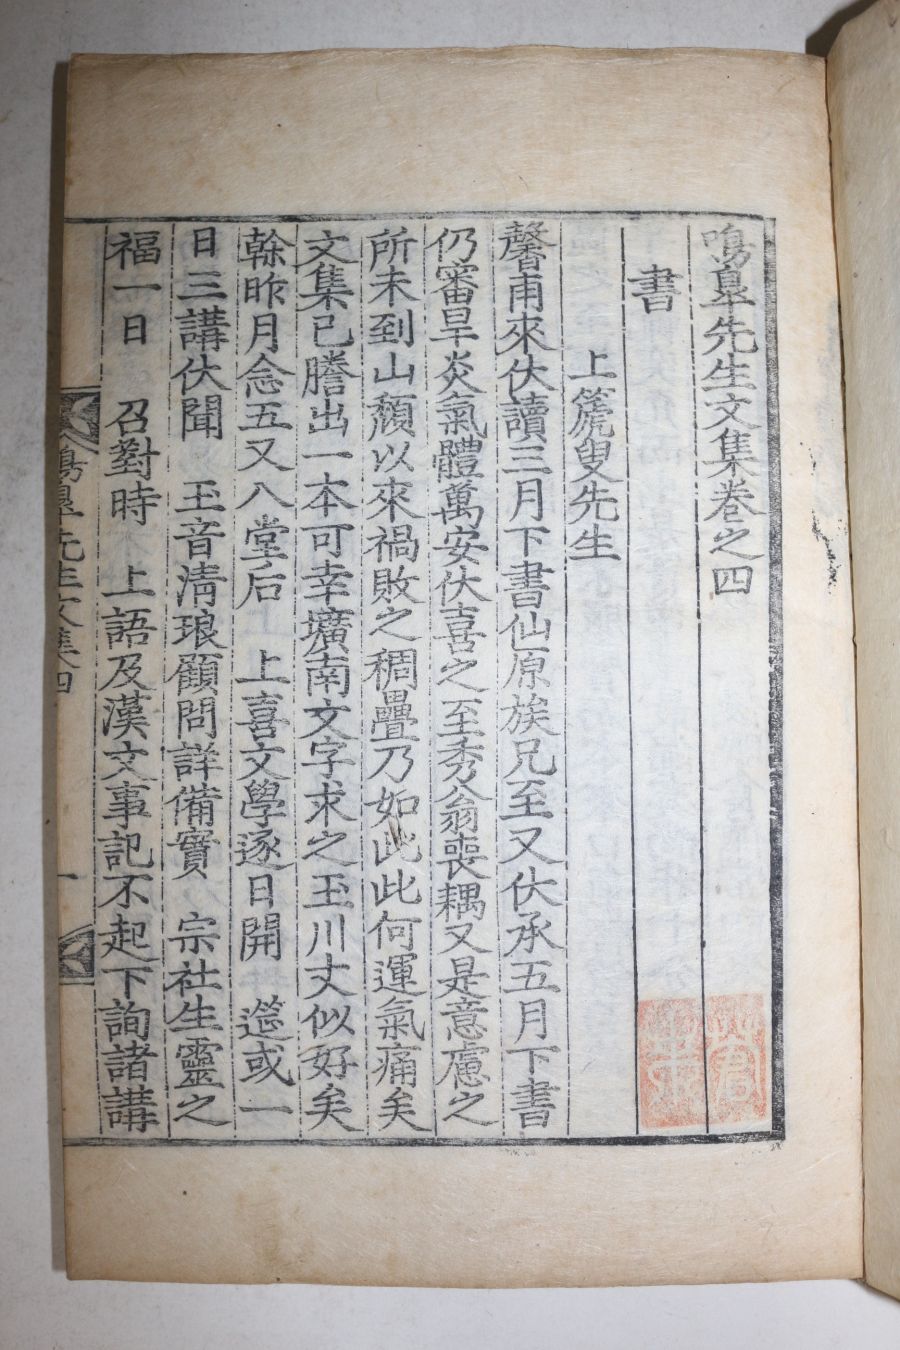 鳴臯先生文集卷之四
書
上篪叟先生
馨甫來伏讀三月下書仙原族兄至又伏承五月下書
仍審旱炎氣體萬安伏喜之至秀翁喪耦又是意慮之
所未到山頹以來禍敗之稠疊乃如此此何運氣痛矣
文集已謄出一本可幸壙南文字求之玉川丈似好矣
幹昨月念五又八堂后 上喜文學逐日開 筵或一
日三講伏聞 玉音淸琅顧問詳備實 宗社生靈之
福一日 召對時 上語及漢文事記不起下詢諸講
鳴臯先生文集四
一